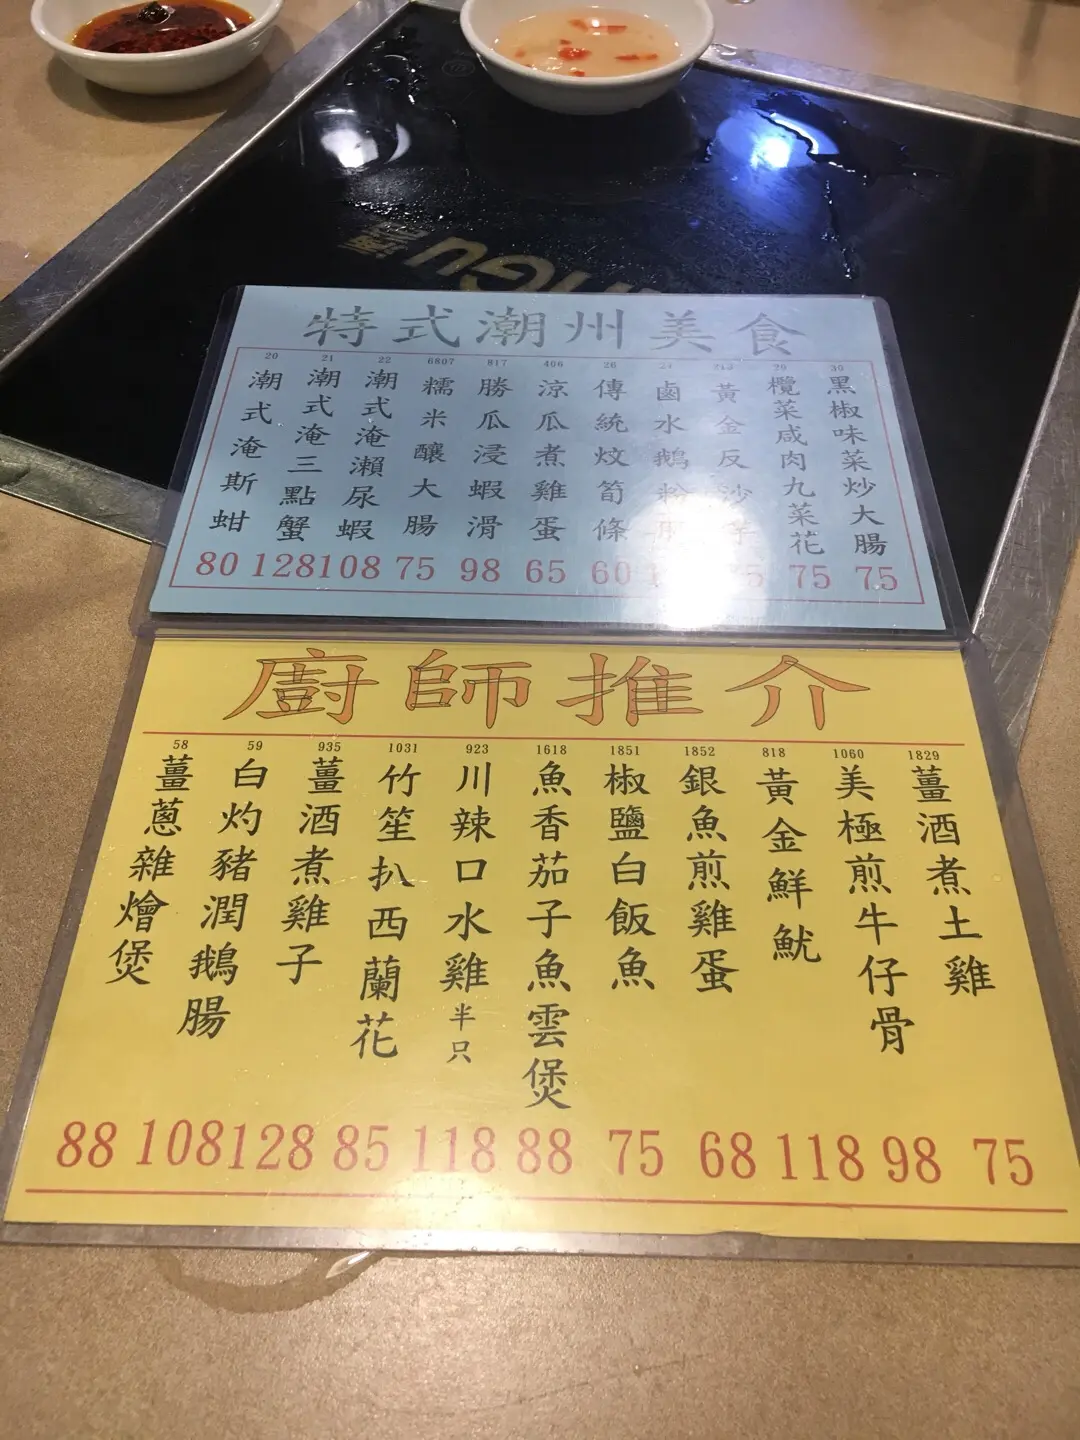 特式潮州美食
20 潮式淹斯蚶 80
21 潮式淹三點蟹 128
22 潮式淹瀨尿蝦 108
6807 糯米釀大腸 75
817 勝瓜浸蝦滑 98
406 涼瓜煮雞蛋 65
26 傳統炆筍條 60
鹵水鵝粉
黃金反沙芋 75
29 欖菜咸肉九菜花 75
30 黑椒味菜炒大腸 75
廚師推介
58 薑蔥雜燴煲 88
59 白灼豬潤鵝腸 108
935 薑酒煮雞子 128
1031 竹笙扒西蘭花 85
923 川辣口水雞半只 118
1618 魚香茄子魚雲煲 88
1851 椒鹽白飯魚 75
1852 銀魚煎雞蛋 68
818 黃金鮮魷 118
1060 美極煎牛仔骨 98
1829 薑酒煮土雞 75